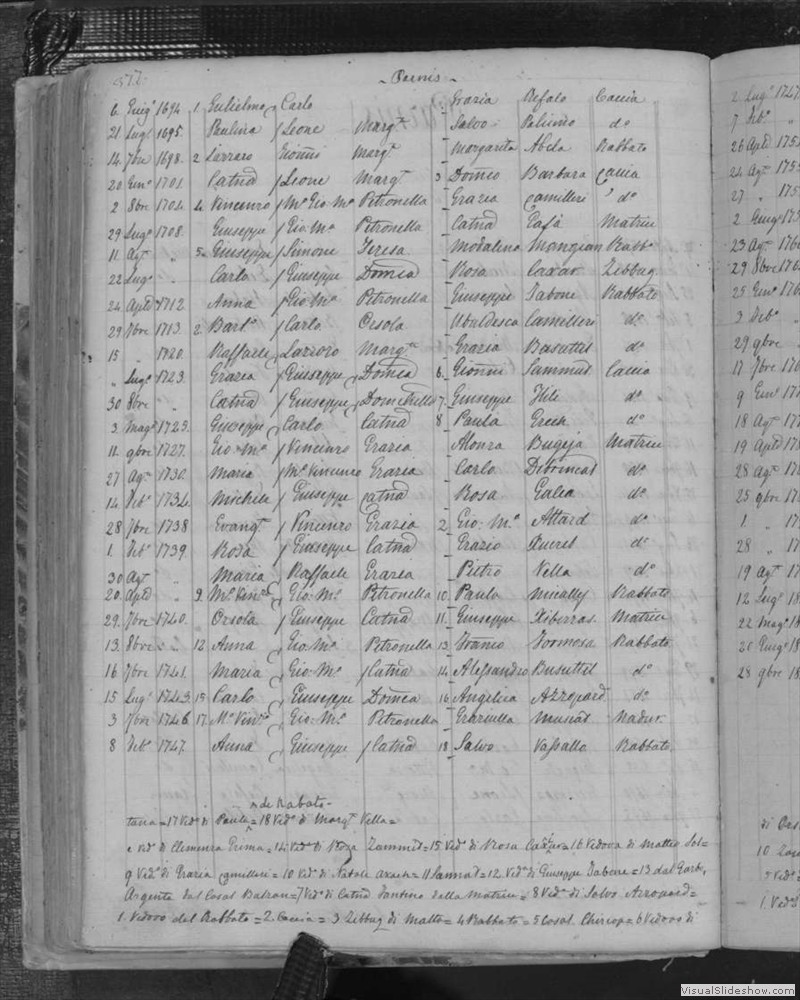 577.
- Pernis -
6 Giug.o 1694 1 Gulielmo / Carlo Grazia Refalo Caccia
21 Lug.o 1695. Paulina / Leone Marg.ta Salvo D.o
14 7bre 1698. 2 Lazzaro Gio: Marg.ta Margarita Abela Rabbato
20 Gen.o 1701. Catna / Leone Marg.ta 3 Domco Barbara Caccia
2 8bre 1704. 4 Vincenzo / M.o Gio: M.a Petronella Grazia Camilleri d.o
29 Lug.o 1708. Giuseppe / Gio: M.a Petronella Catna Matrice
11 Ag.to " 5 Giuseppe / Simone Teresa Madalena Mongion Rabb.o
22 Lug.o " Carlo / Giuseppe Domca Rosa Caxar Zebbug
24 Aple 1712. Anna / Gio: M.a Petronella Giuseppe Tabone Rabbato
29 7bre 1713. 2 Bart.o / Carlo Orsola Ubaldesca Camilleri d.o
15 " 1720. Raffaele / Lazzoro Marg.ta Grazia Busuttil d.o
" Lug.o 1723. Grazia / Giuseppe Domca 6 Gionni Sammut Caccia
30 8bre " Catna / Giuseppe 7 Giuseppe Hili d.o
3 Mag.o 1725. Giuseppe / Carlo Catna 8 Paula Grech d.o
11 9bre 1727. Gio: M.a / Vincenzo Grazia Alonza Bugeja Matrice
27 Ag.to 1730. Maria / M.o Vincenzo Grazia Carlo Debrincat d.o
14 Feb.o 1734. Michele / Giuseppe Catna Rosa Galea d.o
28 7bre 1738 Evangta / Vincenzo Grazia 2 Gio: M.a Attard d.o
1 Feb.o 1739. Rosa / Giuseppe Catna Grazio Xuereb d.o
30 Ag.to " Maria / Raffaele Grazia Pietro Vella d.o
20 Aple " 9 M.o Vinzo / Gio: M.a Petronella 10 Paula Micallef Rabbato
29 7bre 1740. Orsola / Giuseppe Catna 11 Giuseppe Xiberras Matrice
13 8bre " 12 Anna / Gio: M.a Petronella 13 Franco Formosa Rabbato
16 7bre 1741. Maria / Gio: M.a Catna 14 Alessandro Busuttil d.o
15 Lug.o 1743. 15 Carlo / Giuseppe Domca 16 Angelica Azzopard d.o
3 7bre 1746. 17 M.o Vinzo / Gio: M.a Petronella Graziulla Muscat Nadur
8 Feb.o 1747. Anna / Giuseppe Catna 18 Salvo Vassallo Rabbato
de Rabato
tana = 17 Ved.o di Paula = 18 Ved.o di Marg.ta Vella =
e ved.o di Clemenza Prima = 14 Ved.o di Roza Zammit = 15 Ved.o di Rosa Caxar = 16 Vedova di Matteo Sol=
9 Ved.o di Grazia Camilleri = 10 Ved.o di Natale = 11 Sannat = 12 Ved.o di Giuseppe Tabone = 13 dal Garbo,
Argenta dal Casal Balzan = 7 Ved.o di Catna Santino della Matrice = 8 Ved.o di Salvo Azzopard =
1 Vedovo del Rabbato = 2 Caccia = 3 Zebbug di Malta = 4 Rabbato = 5 Casal Chircop = 6 Vedovo di
2 Lug.o 1747
7 Feb.o "
26 Aple 175
24 Ag.to 175
27 " 175
2 Giug.o 175
23 Ag.to 176
29 8bre 176
25 Gen.o 176
3 Feb.o "
29 9bre
17 7bre 17
9 Gen.o 17
18 Ag.to 17
19 Aple 17
28 Ag.to 17
25 9bre 17
1 " 17
28 " 17
19 Ag.to 17
12 Lug.o 18
22 Mag.o 18
20 Giug.o 18
28 9bre 18
di Ors
10 Zam
1 Ved.o
VisualSlideshow.com